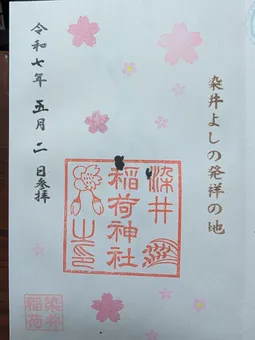 染井よしの発祥の地
染井
稲荷神社
之印
令和七年五月二日参拝
染井
稲荷